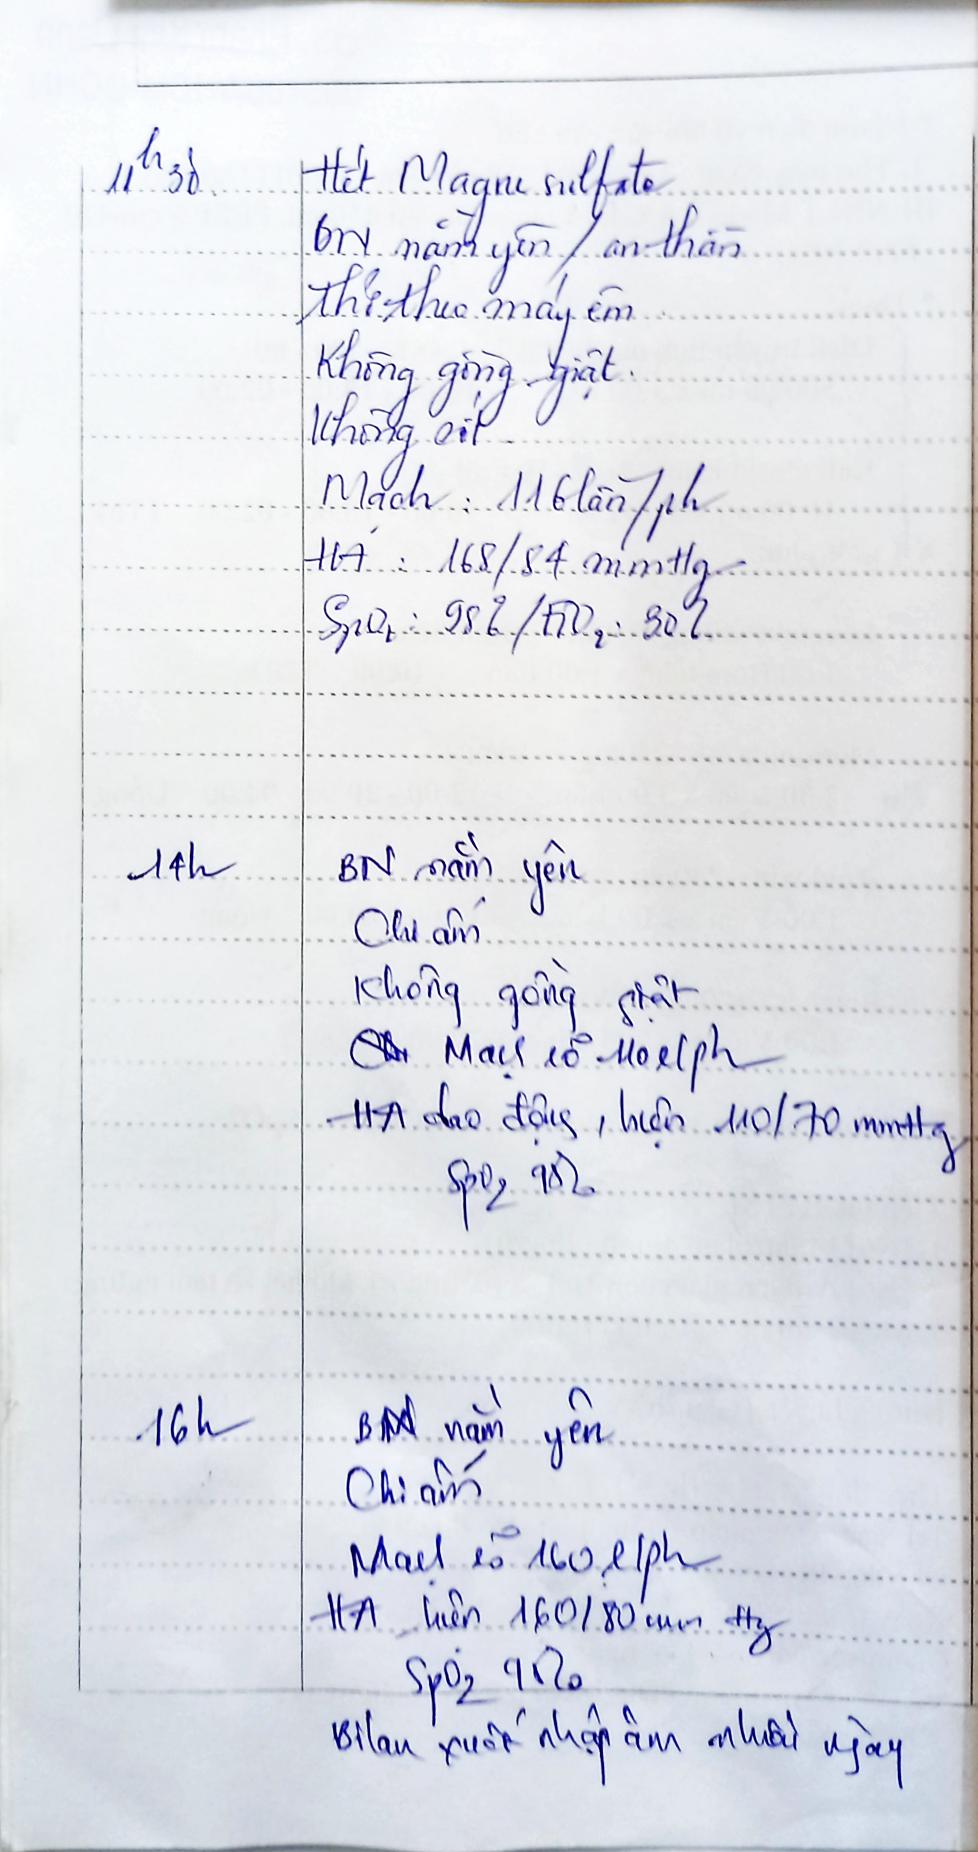 11h30
Hết Magne sulfate
BN nằm yên / an thần
Thở theo máy êm
Không gồng giật.
Không sốt
Mạch : 116 lần/ph
HA : 168/84 mmHg
SpO2 : 98% / FiO2 : 30%
14h
BN nằm yên
Chi ấm
Không gồng giật
Mạch rõ 110 l/ph
HA dao động, hiện 110/70 mmHg
SpO2 98%
16h
BN nằm yên
Chi ấm
Mạch rõ 160 l/ph
HA hiện 160/80 mmHg
SpO2 98%
Bilan xuất nhập âm nhiều ngày